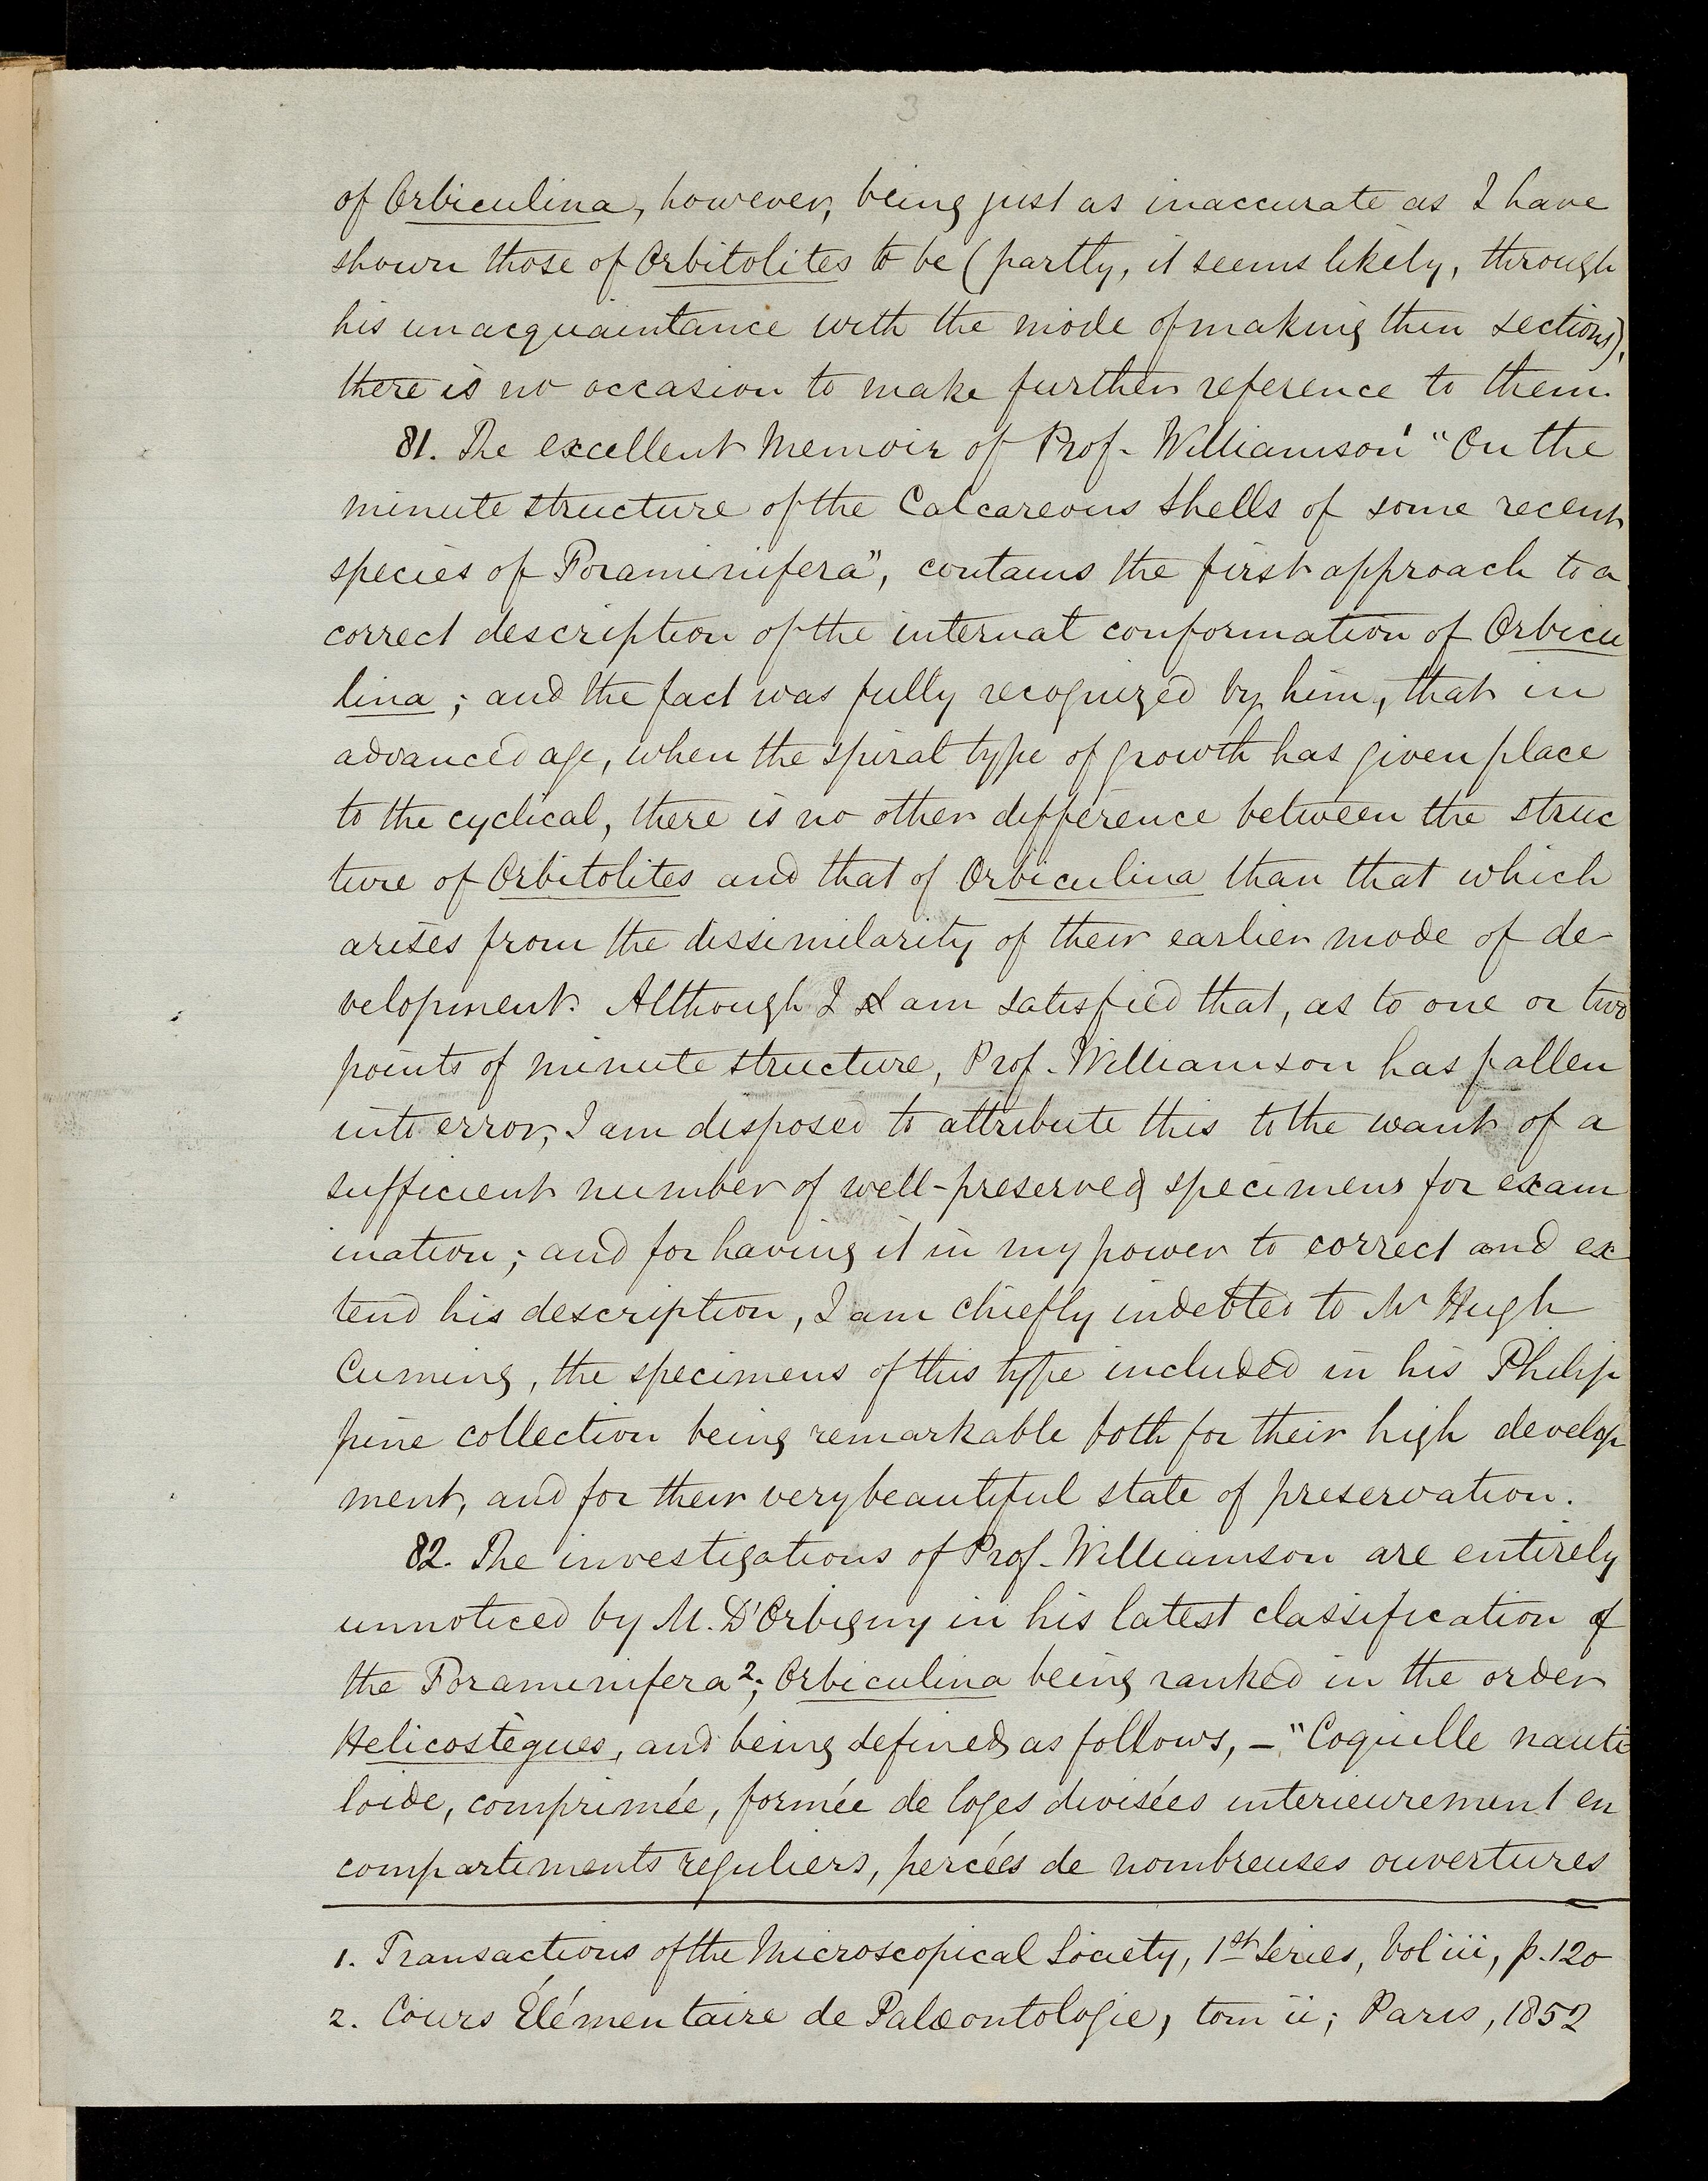 3
of Orbiculina, however, being just as inaccurate as I have
shown those of Orbitolites to be (partly, it seems likely, through
his unacquaintance with the mode of making thin sections),
there is no occasion to make further reference to them.
81. The excellent Memoir of Prof. Williamson¹ "On the
minute structure of the Calcareous Shells of some recent
species of Foraminifera", contains the first approach to a
correct description of the internal conformation of Orbicu
lina; and the fact was fully recognized by him, that in
advanced age, when the spiral type of growth has given place
to the cyclical, there is no other difference between the struc
ture of Orbitolites and that of Orbiculina than that which
arises from the dissimilarity of their earlier mode of de-
velopment. Although I am satisfied that, as to one or two
points of minute structure, Prof. Williamson has fallen
into error, I am disposed to attribute this to the want of a
sufficient number of well-preserved specimens for exam
ination; and for having it in my power to correct and ex
tend his description, I am chiefly indebted to Mr Hugh
Cuming, the specimens of this type included in his Philip
pine collection being remarkable both for their high develop
ment, and for their very beautiful state of preservation.
82. The investigations of Prof. Williamson are entirely
unnoticed by M. D'Orbigny in his latest classification of
the Foraminifera²; Orbiculina being ranked in the order
Helicostègues, and being defined as follows, – "Coquille nauti
loide, comprimée, formée de loges divisées interieurement en
compartiments reguliers, percées de nombreuses ouvertures
1. Transactions of the Microscopical Society, 1st Series, Vol iii, p. 120
2. Cours Élémentaire de Palæontologie, tom ii; Paris, 1852